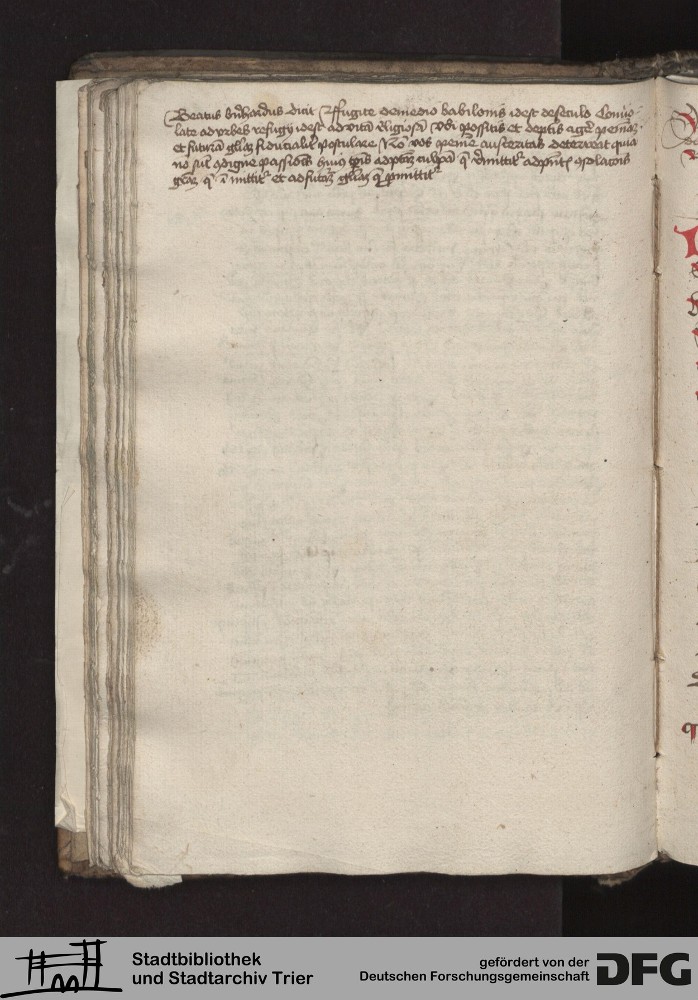 Beatus bernhardus dicit ffugite demedio babilonis idest deseculo Convo-
late ad urbes refugij idest ad vitā religiosā Vbi possitis et de p̄tis agere penitēciā
et futurā gl̄am fiducialiter postulare Nō vos penitēcie austeritas deterreat quia
nō sūt 9digne passiones huius tp̄is ad p̄teritā culpā q̄ dimittitur ad p̄ntem 9solacōnis
gr̄am q̄ īmittitur et ad futurā gl̄am q̄ p̄mittitur
Stadtbibliothek
und Stadtarchiv Trier
gefördert von der
Deutschen Forschungsgemeinschaft
DFG